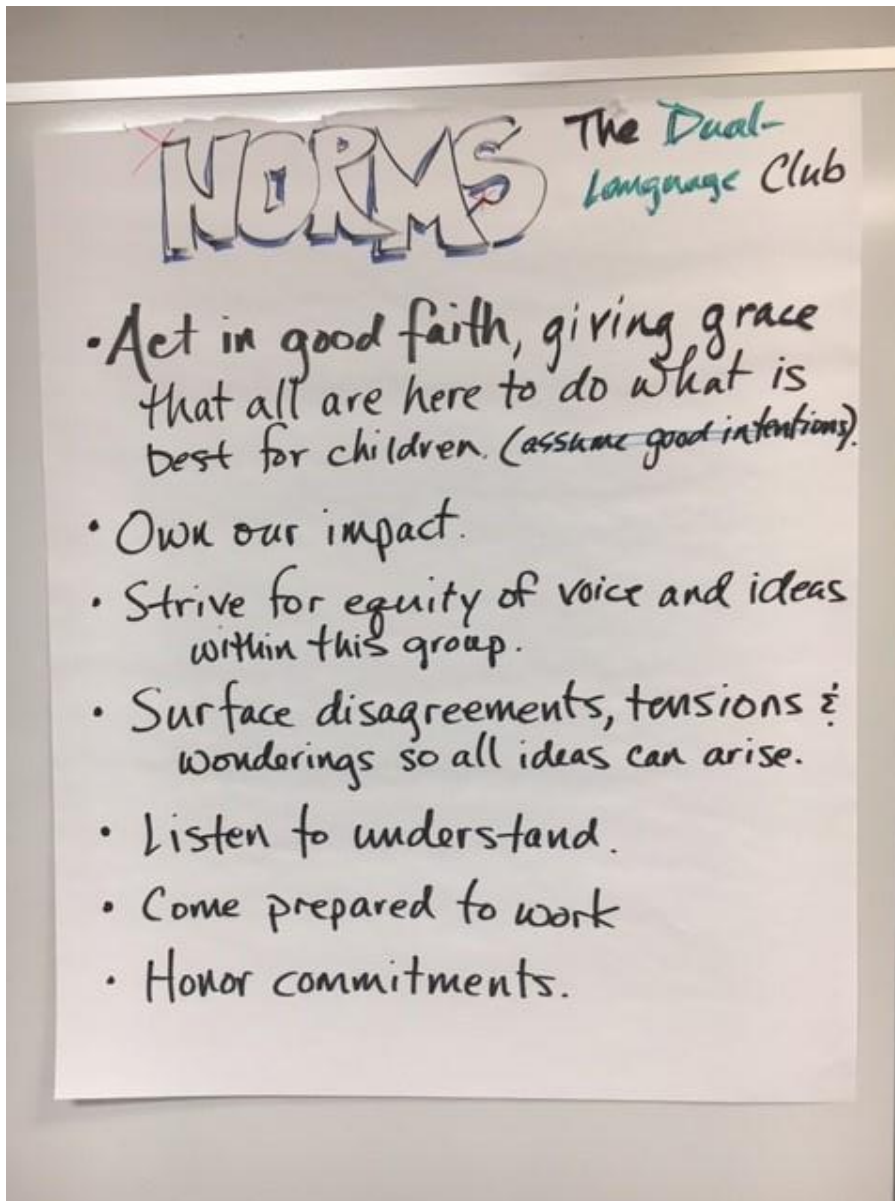 NORMS The Dual-
Language Club
• Act in good faith, giving grace
that all are here to do what is
best for children. (assume good intentions).
• Own our impact.
• Strive for equity of voice and ideas
within this group.
• Surface disagreements, tensions &
wonderings so all ideas can arise.
• Listen to understand.
• Come prepared to work
• Honor commitments.